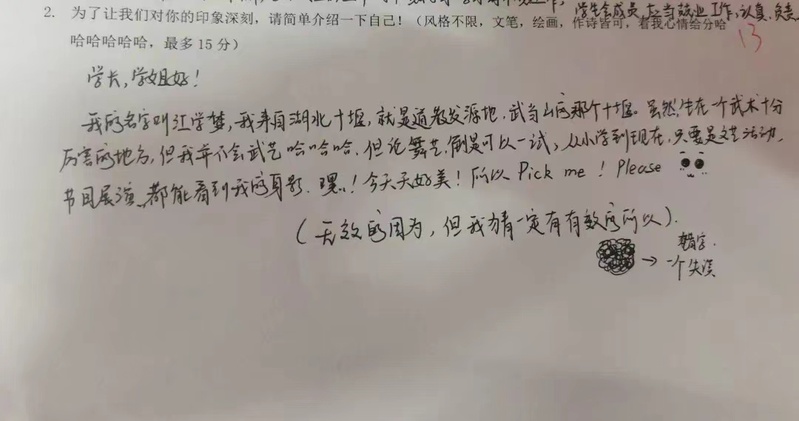 学生会成员,应当敬业工作,认真,负责
2. 为了让我们对你的印象深刻,请简单介绍一下自己!(风格不限,文笔,绘画,作诗皆可,看我心情给分哈
哈哈哈哈哈,最多 15 分)
13
学长,学姐好!
我的名字叫江学梦,我来自湖北十堰,就是道教发源地,武当山的那个十堰。虽然生在一个武术十分
厉害的地方,但我并不会武艺哈哈哈.但论舞艺,倒是可以一试,从小学到现在,只要是文艺活动,
节目展演,都能看到我的身影.嘿!今天天好美!所以 Pick me!Please
(无效的因为,但我猜一定有有效的所以).
→ 错字.
一个失误